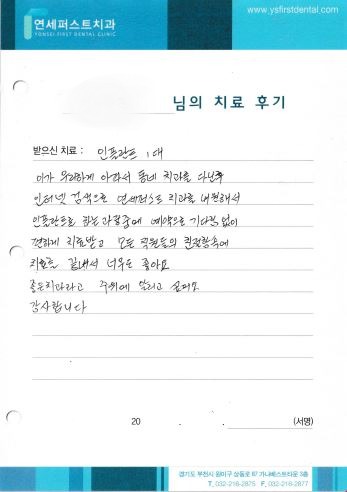 연세퍼스트치과
YONSEI FIRST DENTAL CLINIC
www.ysfirstdental.com
님의 치료 후기
받으신 치료 : 인플란트 1대
이가 우리하게 아파서 동네 치과를 다닌후
인터넷 검색으로 연세퍼스트 치과를 내원해서
인플란트를 하는 과정중에 예약으로 기다림없이
편하게 치료받고 모든 직원들의 친절함속에
치료를 끝내서 너무도 좋아요
좋은치과라고 주위에 알리고 싶퍼요
감사합니다
20 . . . (서명)
경기도 부천시 원미구 상동로 87 가나베스트타운 3층
T. 032-218-2875 F. 032-218-2877